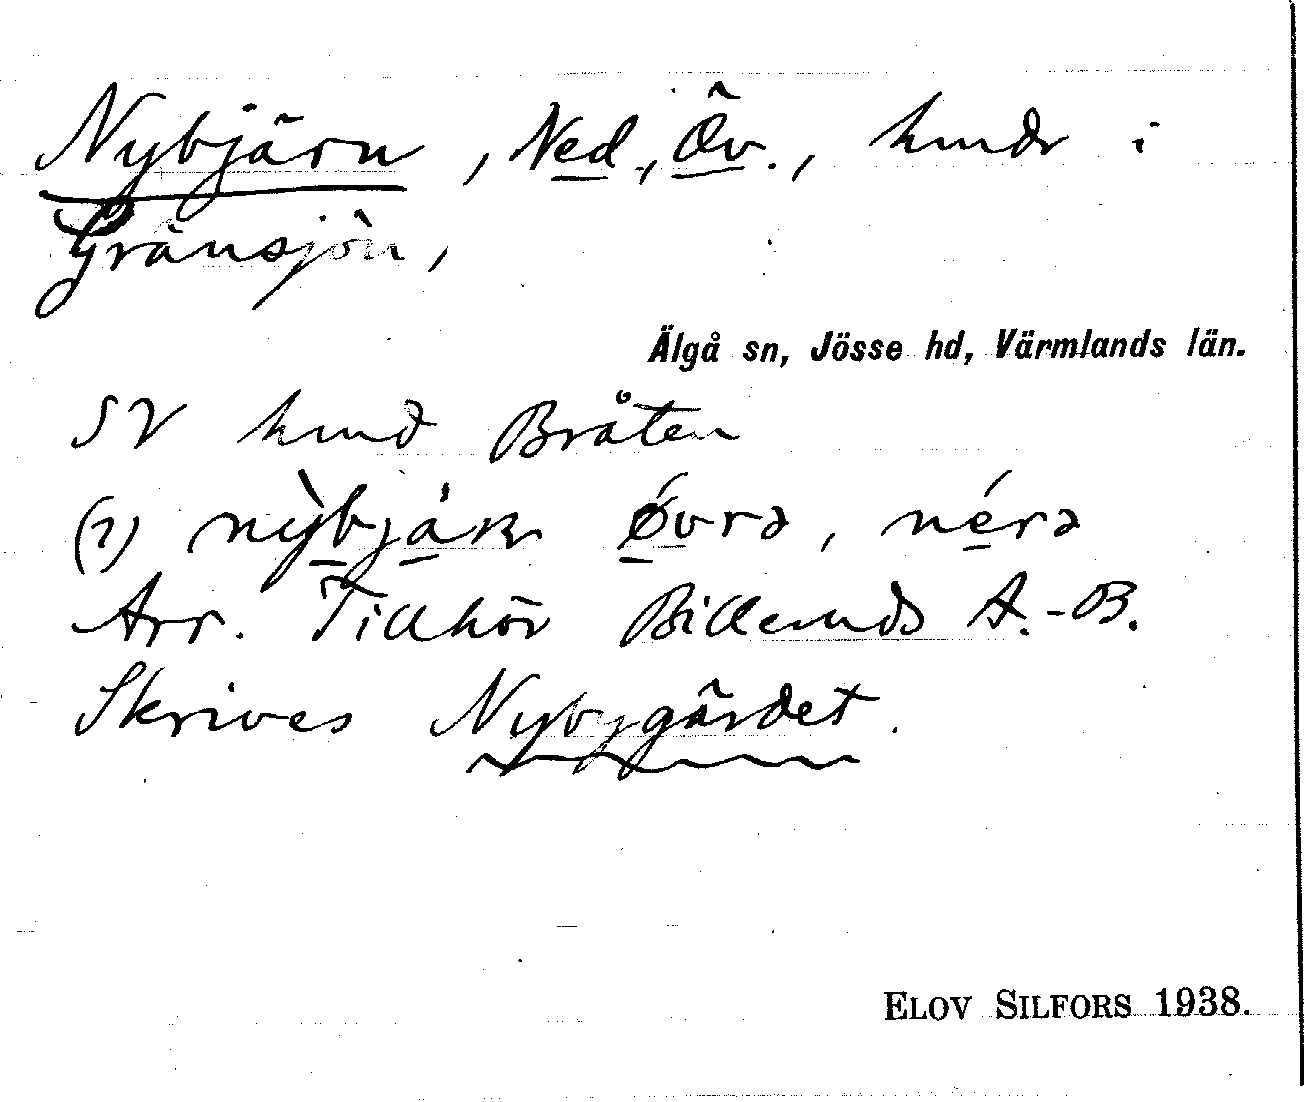 Nybjärn, Ned., Öv., hmdr i
Gränsjön,
Älgå sn, Jösse hd, Värmlands län.
SV hmd Bråten
(?) øvrə, nérə
Arr. Tillhör Billeruds A.-B.
Skrives Nybygärdet.
ELOV SILFORS 1938.